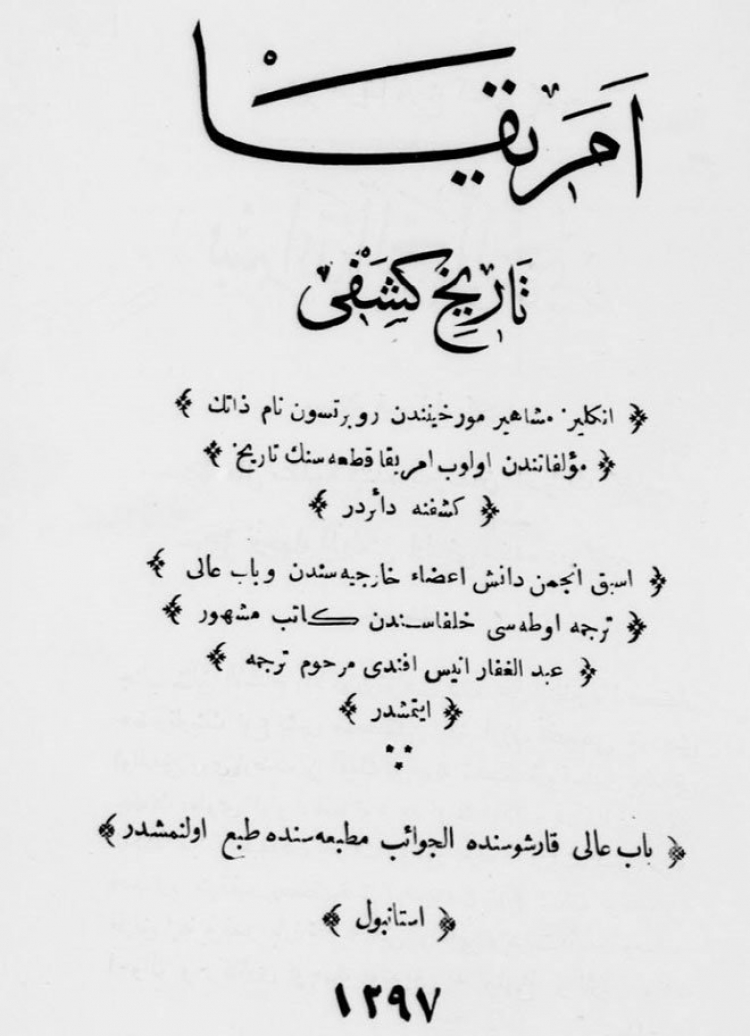 امريقا
تاريخ كشفى
﴿ انكليز مشاهير مورخيندن روبرتسون نام ذاتك ﴾
﴿ مؤلفاتندن اولوب امريقا قطعه‌سنك تاريخ ﴾
﴿ كشفنه دائردر ﴾
﴿ اسبق انجمن دانش اعضاء خارجيه‌سندن وباب عالى ﴾
﴿ ترجمه اوطه‌سى خلفاسندن كاتب مشهور ﴾
﴿ عبد الغفار انيس افندى مرحوم ترجمه ﴾
﴿ ايتمشدر ﴾
﴿ باب عالى قارشوسنده الجوائب مطبعه‌سنده طبع اولنمشدر ﴾
﴿ استانبول ﴾
١٢٩٧